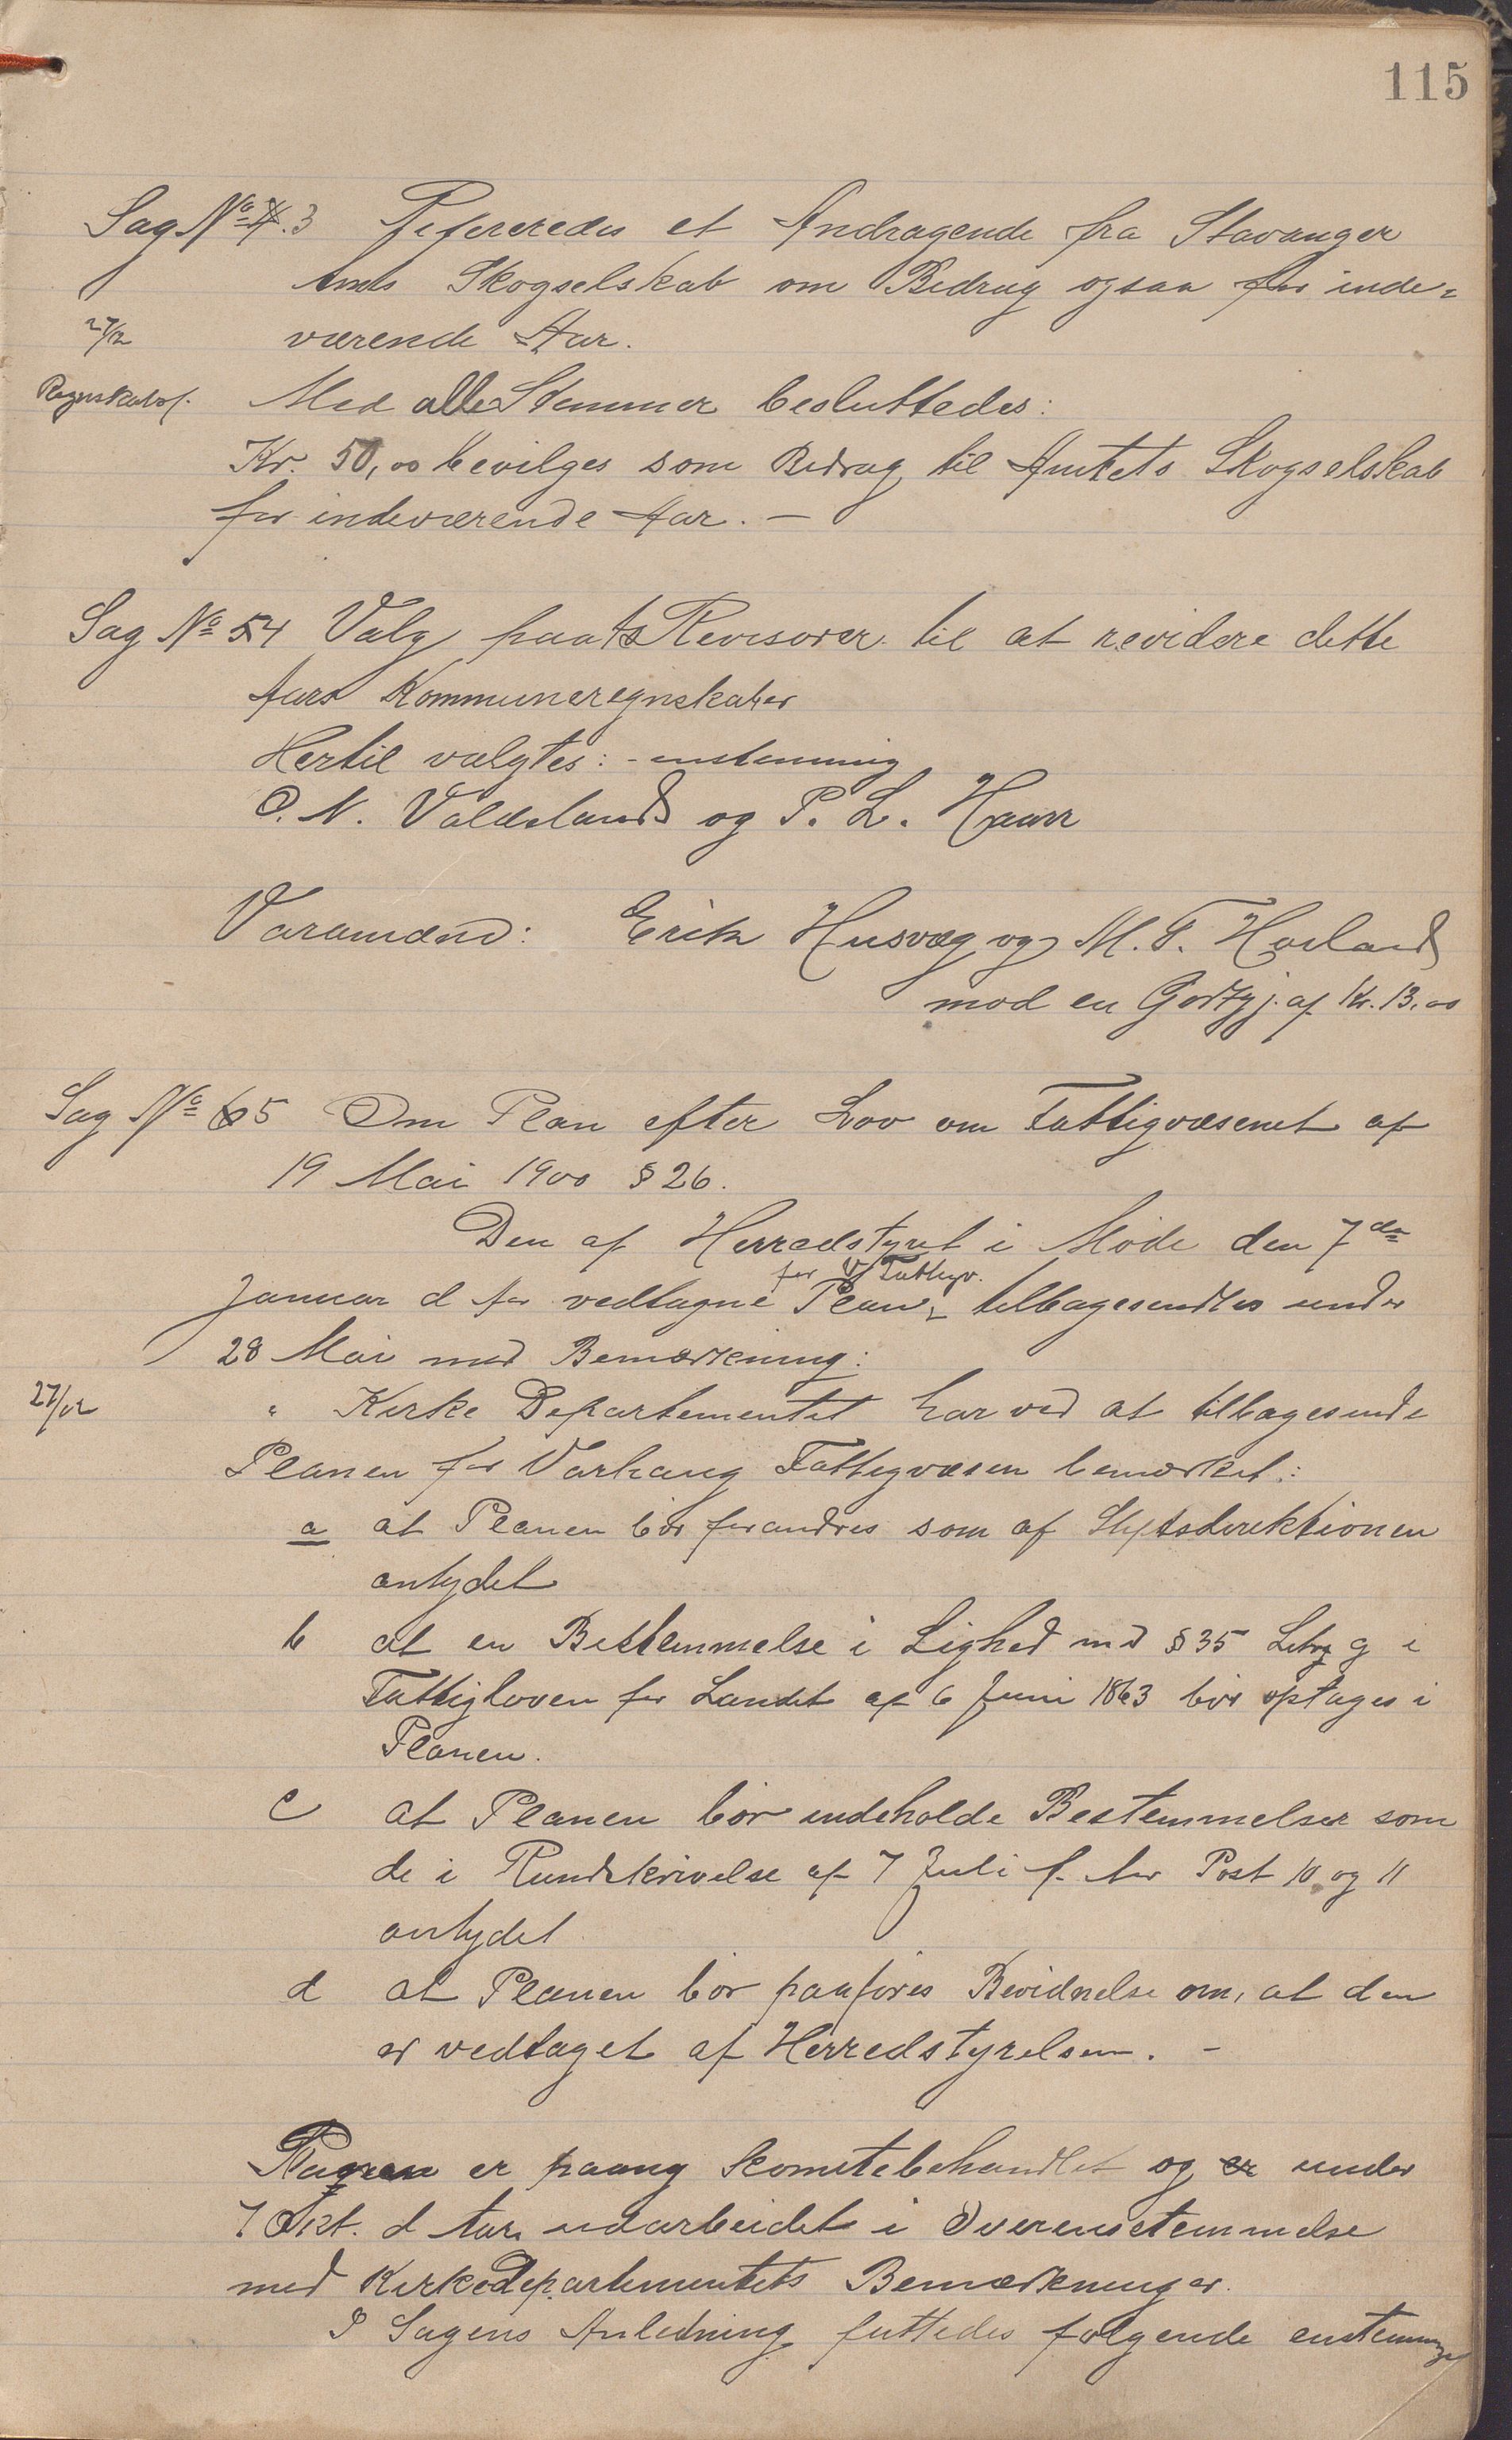 115
Sag No 4. 3 Refereredes et Andragende fra Stavanger
Amts Skogselskab om Bidrag ogsaa for inde=
27/12 værende Aar.
Regnskabsf. Med alle Stemmer besluttedes:
Kr. 50,00 bevilges som Bidrag til Amtets Skogselskab
for indeværende Aar. —
Sag No 54 Valg paa to Revisorer til at revidere dette
Aars Kommuneregnskaber
Hertil valgtes: - enstemmig
O. N. Valdeland og P. L. Haarr
Varamænd: Erik Husvæg og M. T. Horland
mod en Godtgj. af Kr. 13,00
Sag No 6 5 Om Plan efter Lov om Fattigvæsenet af
19 Mai 1900 § 26.
Den af Herredstyret i Møde den 7de
for V Fattigv.
Januar d Aar vedtagne Plan, tilbagesendtes under
28 Mai med Bemærkning:
27/12 " Kirke Departementet har ved at tilbagesende
Planen for Varhaug Fattigvæsen bemærket:
a at Planen bør forandres som af Stiftsdirektionen
antydet
b at en Bestemmelse i Lighed med § 35 Litr g i
Fattigloven for Landet af 6 Juni 1863 bør optages i
Planen.
c at Planen bør indeholde Bestemmelser som
de i Rundskrivelse af 7 Juli f. Aar Post 10 og 11
antydet
d at Planen bør paaføres Bevidnelse om, at den
er vedtaget af Herredstyrelsen. -
er paany komitebehandlet og er under
7 Okt. d Aar udarbeidet i Overensstemmelse
med Kirkedepartementets Bemærkninger.
I Sagens Anledning fattedes følgende enstemmige